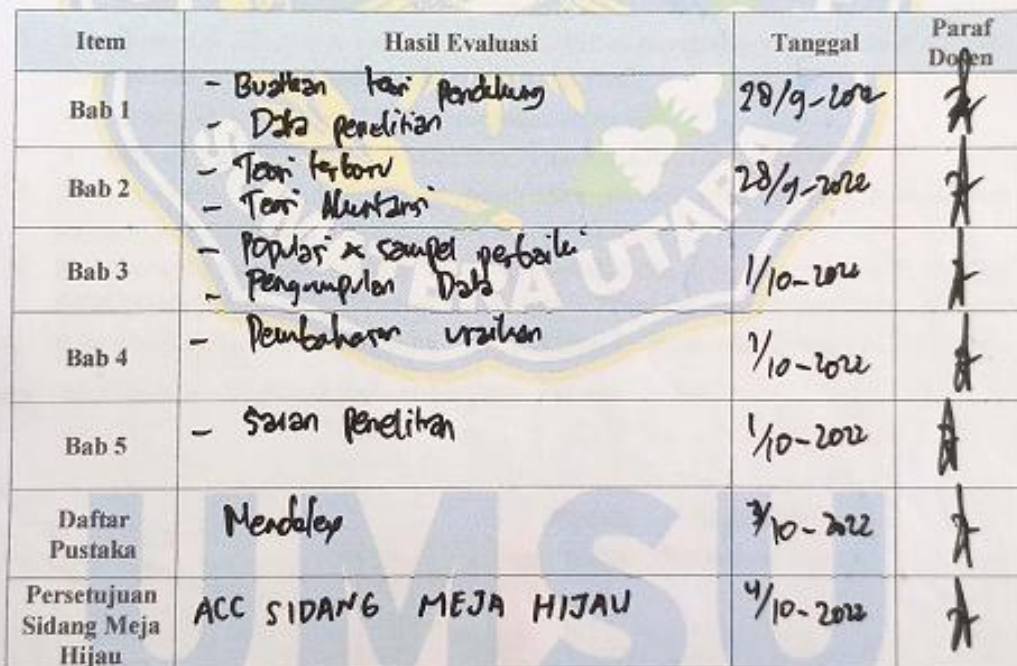 Item Hasil Evaluasi Tanggal Paraf Dosen
Bab 1
- Buatkan teori pendukung
- Data penelitian
28/9-2022
Bab 2
- Teori terbaru
- Teori Akuntansi
28/9-2022
Bab 3
- Populasi & sampel perbaiki
- Pengumpulan Data
1/10-2022
Bab 4
- Pembahasan uraikan
1/10-2022
Bab 5
- Saran Penelitian
1/10-2022
Daftar Pustaka
Mendeley
3/10-2022
Persetujuan Sidang Meja Hijau
ACC SIDANG MEJA HIJAU
4/10-2022
UTARA
UMSU